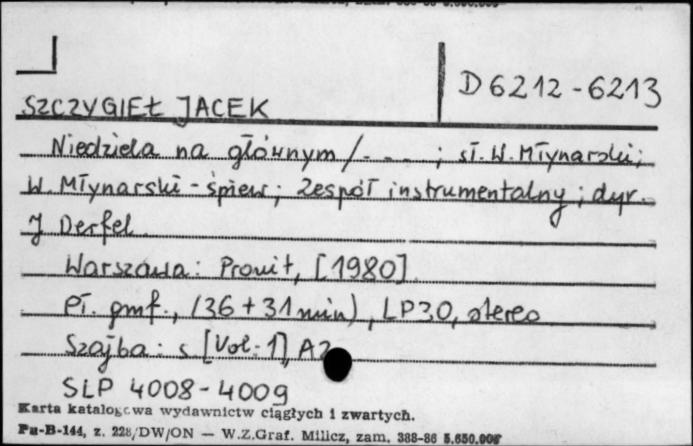 D 6212-6213
SZCZYGIEŁ JACEK
Niedziela na głównym /. - - ; sł. W. Młynarski;
W. Młynarski - śpiew; Zespół instrumentalny; dyr.
J Derfel
Warszawa: Pronit, [1980]
Pł. gmf., (36 + 31 min), LP30, stereo
Szajba: s [Vol. 1], A2
SLP 4008-4009
Karta katalogowa wydawnictw ciągłych i zwartych.
Pu-B-144, z. 228/DW/ON — W.Z.Graf. Milicz, zam. 388-86 5.650.000